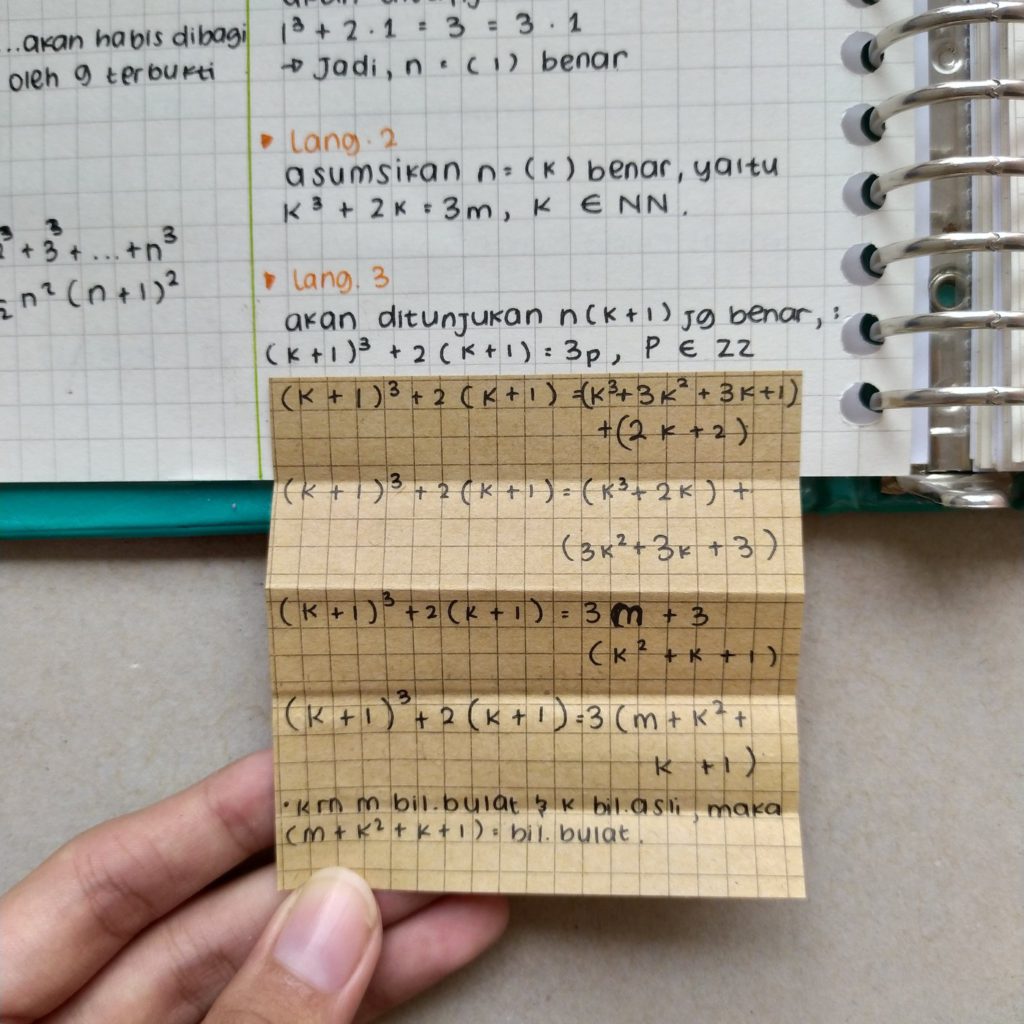 ...akan habis dibagi
oleh 9 terbukti
+ 3³ + ... + n³
n² (n+1)²
1³ + 2 . 1 = 3 = 3 . 1
→ Jadi, n = (1) benar
• Lang. 2
asumsikan n = (k) benar, yaitu
k³ + 2k = 3m, k ∈ NN.
• Lang. 3
akan ditunjukan n(k+1) jg benar, :
(k+1)³ + 2(k+1) = 3p, P ∈ ZZ
(k+1)³ + 2(k+1) = (k³ + 3k² + 3k+1)
+ (2k+2)
(k+1)³ + 2(k+1) = (k³ + 2k) +
(3k² + 3k + 3)
(k+1)³ + 2(k+1) = 3m + 3
(k² + k + 1)
(k+1)³ + 2(k+1) = 3(m + k² +
k + 1)
• krn m bil.bulat & k bil.asli, maka
(m + k² + k + 1) = bil. bulat.